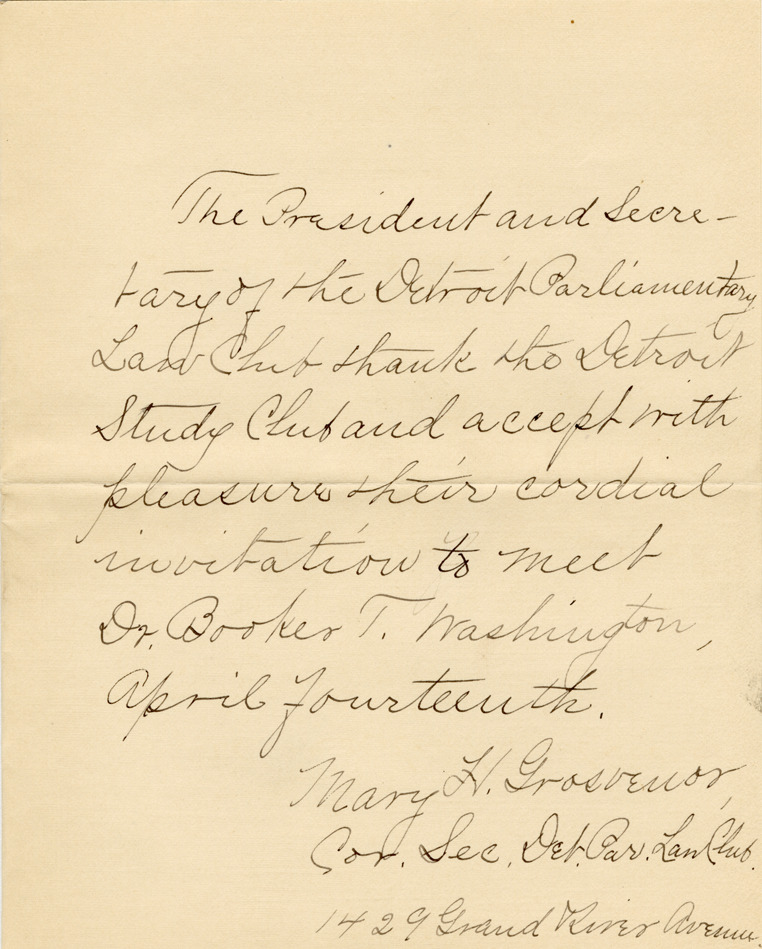 The President and Secre-
tary of the Detroit Parliamentary
Law Club thank the Detroit
Study Club and accept with
pleasure their cordial
invitation to meet
Dr. Booker T. Washington,
April fourteenth.
Mary H. Grosvenor,
Cor. Sec. Det. Par. Law Club.
1429 Grand River Avenue.